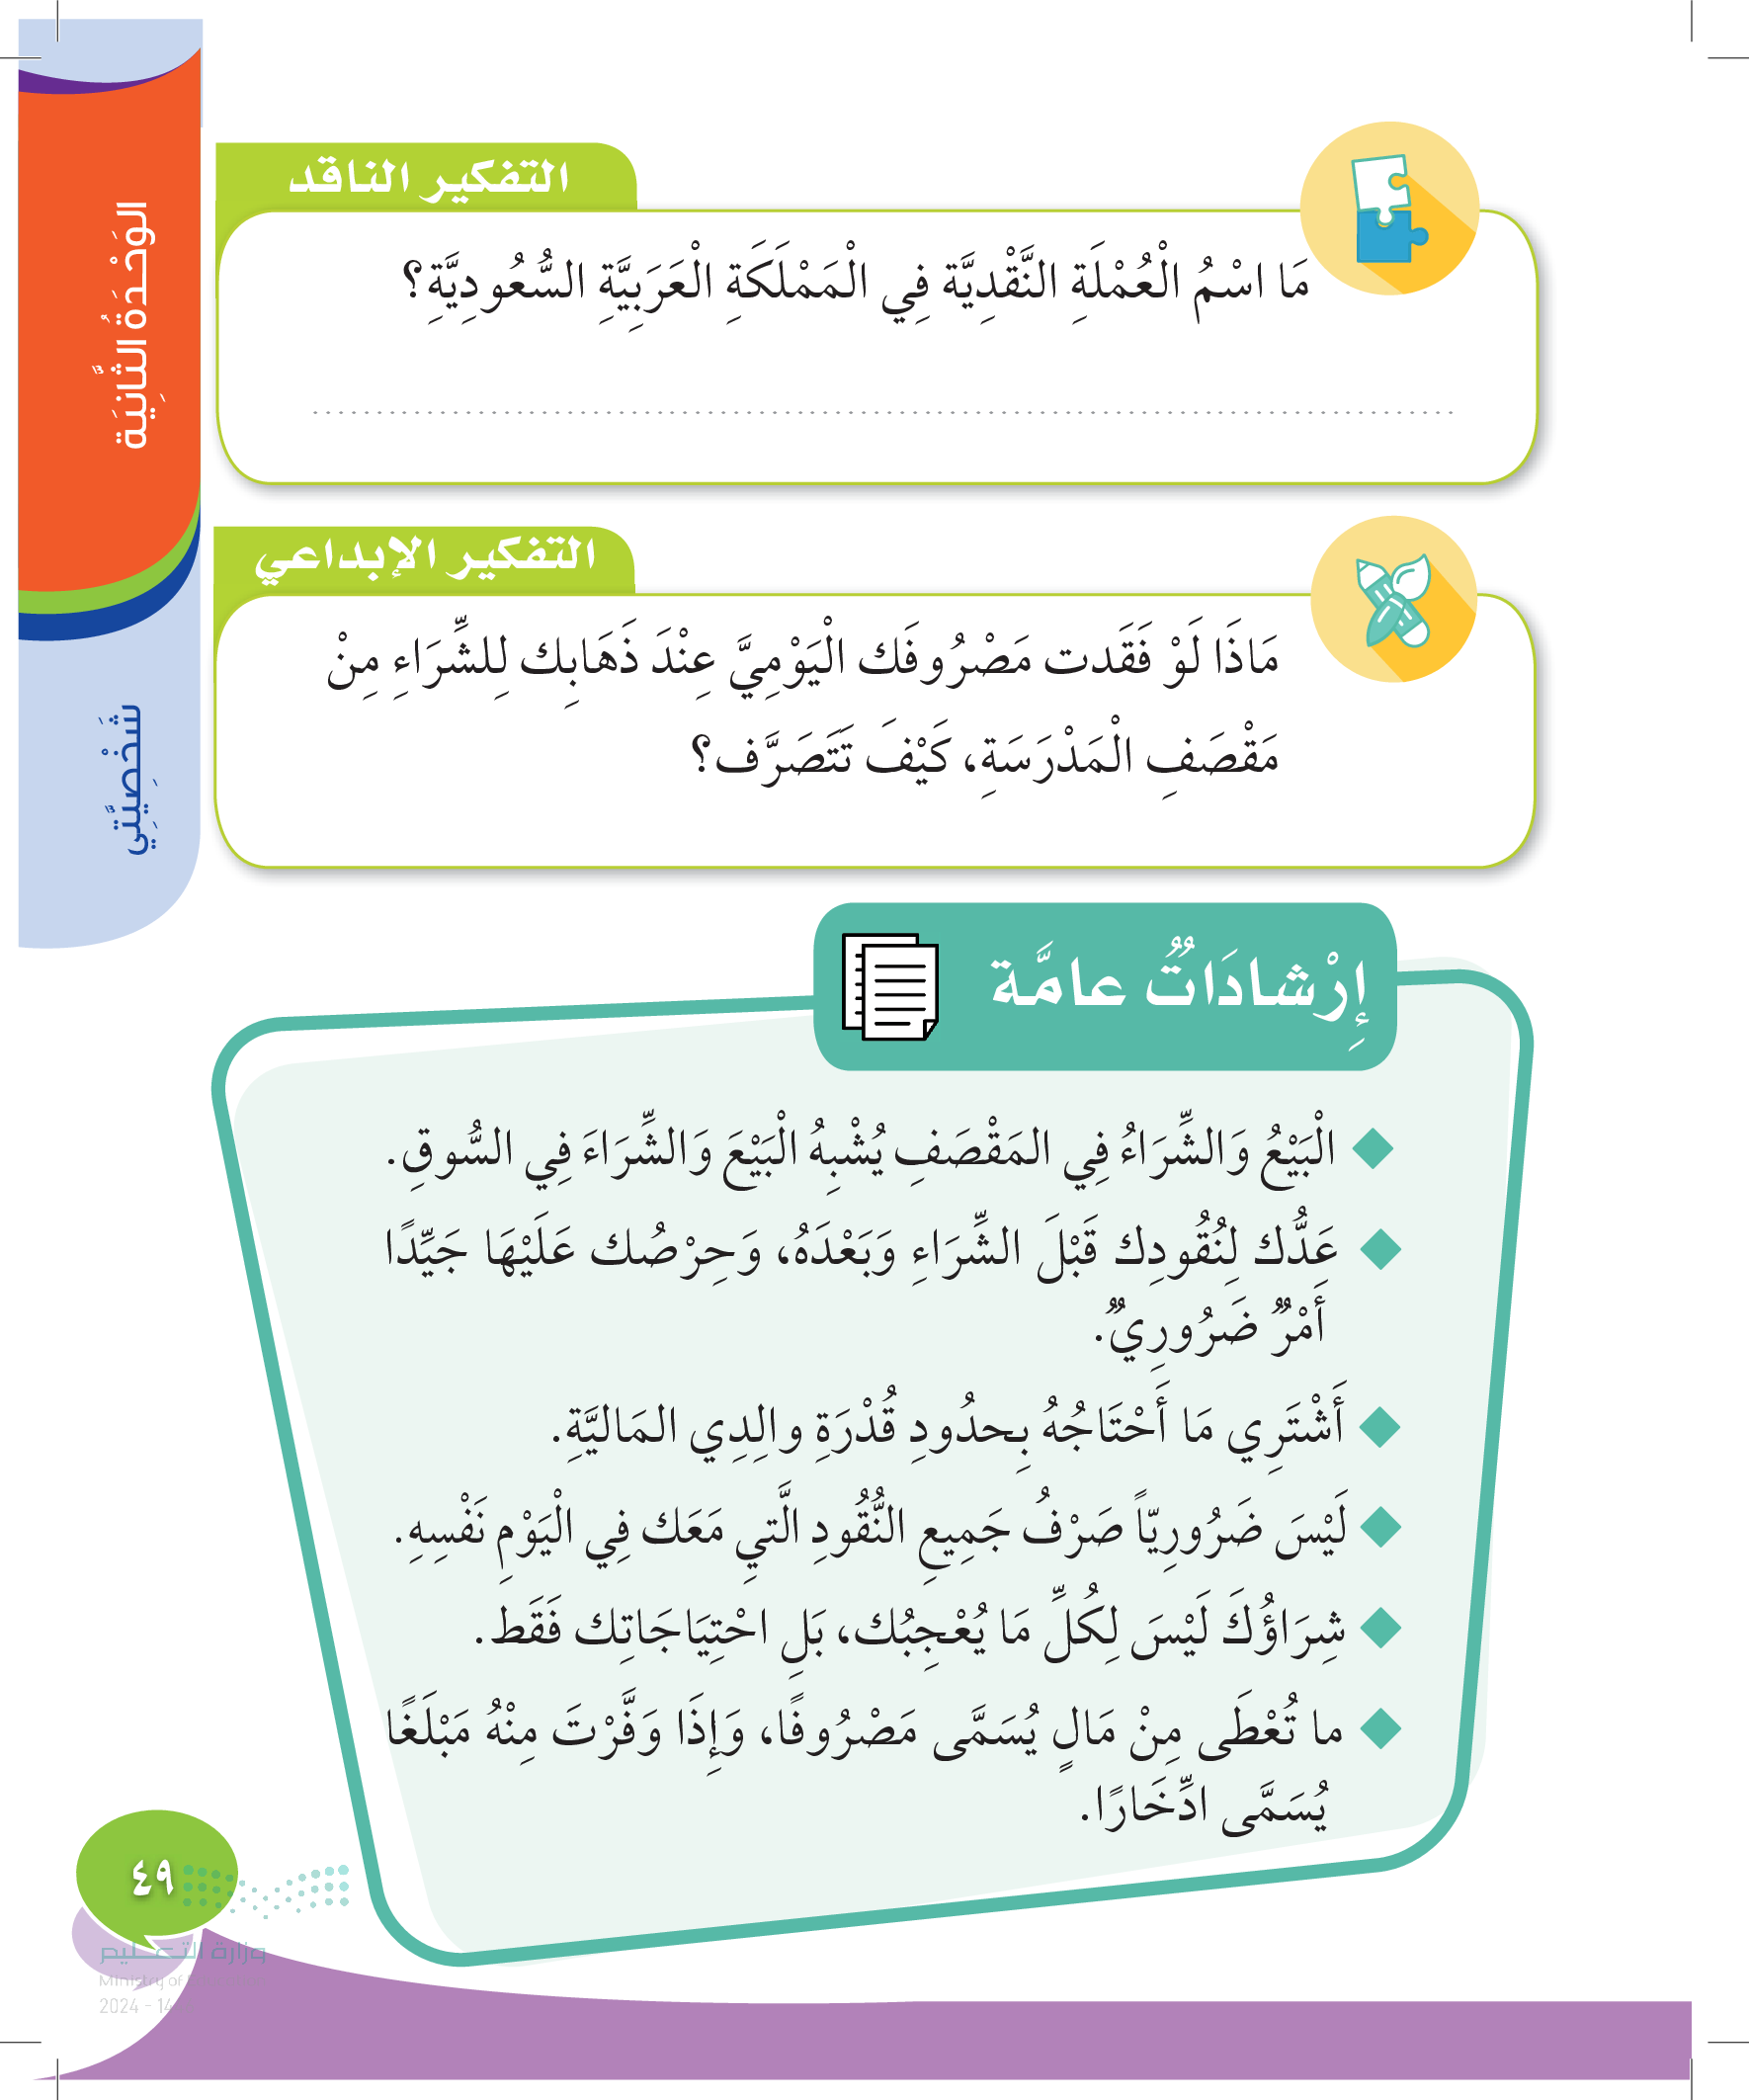 التفكير الناقد
مَا اسْمُ الْعُمْلَةِ النَّقْدِيَّة فِي الْمَمْلَكَةِ الْعَرَبِيَّةِ السُّعُودِيَّةِ؟
التفكير الإبداعي
مَاذَا لَوْ فَقَدت مَصْرُوفَك الْيَوْمِيَّ عِنْدَ ذَهَابِك لِلشِّرَاءِ مِنْ
مَقْصَفِ الْمَدْرَسَةِ، كَيْفَ تَتَصَرَّف؟
إِرْشادَاتٌ عامَّة
الْبَيْعُ وَالشِّرَاءُ فِي المَقْصَفِ يُشْبِهُ الْبَيْعَ وَالشِّرَاءَ فِي السُّوقِ.
عَدُّك لِنُقُودِك قَبْلَ الشِّرَاءِ وَبَعْدَهُ، وَحِرْصُك عَلَيْهَا جَيِّدًا
أَمْرٌ ضَرُورِيٌّ.
أَشْتَرِي مَا أَحْتَاجُهُ بِحدُودِ قُدْرَةِ والِدِي المَاليَّةِ.
لَيْسَ ضَرُورِيّاً صَرْفُ جَمِيعِ النُّقُودِ الَّتيِ مَعَك فِي الْيَوْمِ نَفْسِهِ.
شِرَاؤُكَ لَيْسَ لِكُلِّ مَا يُعْجِبُك، بَلِ احْتِيَاجَاتِك فَقَط.
ما تُعْطَى مِنْ مَالٍ يُسَمَّى مَصْرُوفًا، وَإِذَا وَفَّرْتَ مِنْهُ مَبْلَغًا
يُسَمَّى ادِّخَارًا.
الوَحْدَةُ الثَّانِيَة
شَخْصِيَّتِي
٤٩
وزارة التعليم
Ministry of
2024 - 14